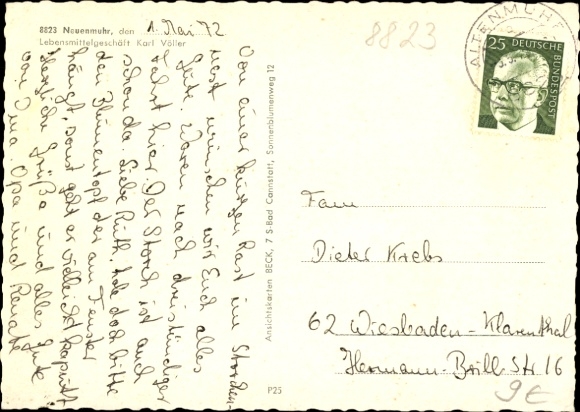 8823 Neuenmuhr, den 1. Mai 72
Lebensmittelgeschäft Karl Völler
Von einer kurzen Rast im Storchen-
nest wünschen wir Euch alles
Gute. Waren nach dreistündiger
Fahrt hier. Der Storch ist auch
schon da. Liebe Ruth, hole doch bitte
den Blumentopf der am Fenster
hängt, sonst geht er vielleicht kaputt.
Herzliche Grüße und alles Gute
von Oma, Opa und Renate
Ansichtskarten BECK, 7 S-Bad Cannstatt, Sonnenblumenweg 12
P25
8823
ALTENMUHR
25 DEUTSCHE BUNDESPOST
Fam
Dieter Krebs
62 Wiesbaden-Klarenthal
Hermann-Brill-Str 16
9€